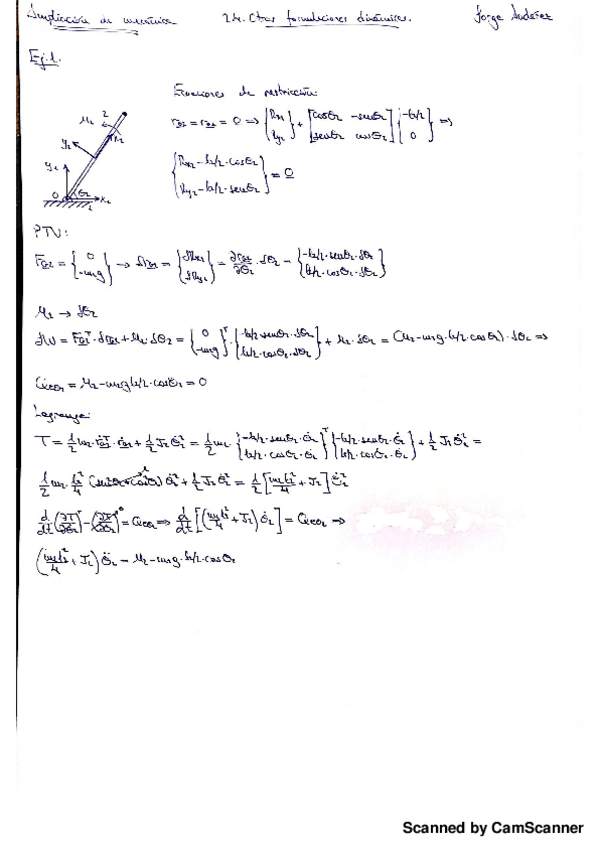 Ampliación de mecánica 24. Otras formulaciones dinámicas. Jorge
Ej.1.
Ecuaciones de restricción:
r_G2 = r_G2 = 0 ⇒ {R_x2 R_y2} + [cosθ₂ -senθ₂ senθ₂ cosθ₂] {-l₂/2 0} ⇒
{R_x2 - l₂/2·cosθ₂ R_y2 - l₂/2·senθ₂} = 0
M₂ 2 x₂ y₂ y₁ O θ₂ x₁ 1
PTV:
F_G2 = {0 -m₂g} → δr_G2 = {δR_x2 δR_y2} = ∂r_G2/∂θ₂ · δθ₂ = {-l₂/2·senθ₂·δθ₂ l₂/2·cosθ₂·δθ₂}
M₂ → δθ₂
δW = F_G2ᵀ·δr_G2 + M₂·δθ₂ = {0 -m₂g}ᵀ {-l₂/2·senθ₂·δθ₂ l₂/2·cosθ₂·δθ₂} + M₂·δθ₂ = (M₂ - m₂g·l₂/2·cosθ₂)·δθ₂ ⇒
= M₂ - m₂g l₂/2·cosθ₂ = 0
Lagrange:
T = 1/2 m₂·ṙ_G2ᵀ·ṙ_G2 + 1/2 J₂θ̇₂² = 1/2 m₂·{-l₂/2·senθ₂·θ̇₂ l₂/2·cosθ₂·θ̇₂}ᵀ {-l₂/2·senθ₂·θ̇₂ l₂/2·cosθ₂·θ̇₂} + 1/2 J₂θ̇₂² =
1/2 m₂·l₂²/4 (sen²θ₂+cos²θ₂)¹ θ̇₂² + 1/2 J₂θ̇₂² = 1/2 [m₂l₂²/4 + J₂] θ̇₂²
d/dt (∂T/∂θ̇₂)ᵀ - (∂T/∂θ₂)ᵀ⁰ = ⇒ d/dt [(m₂l₂²/4 + J₂) θ̇₂] = ⇒
(m₂l₂²/4 + J₂) θ̈₂ = M₂ - m₂g·l₂/2·cosθ₂
Scanned by CamScanner